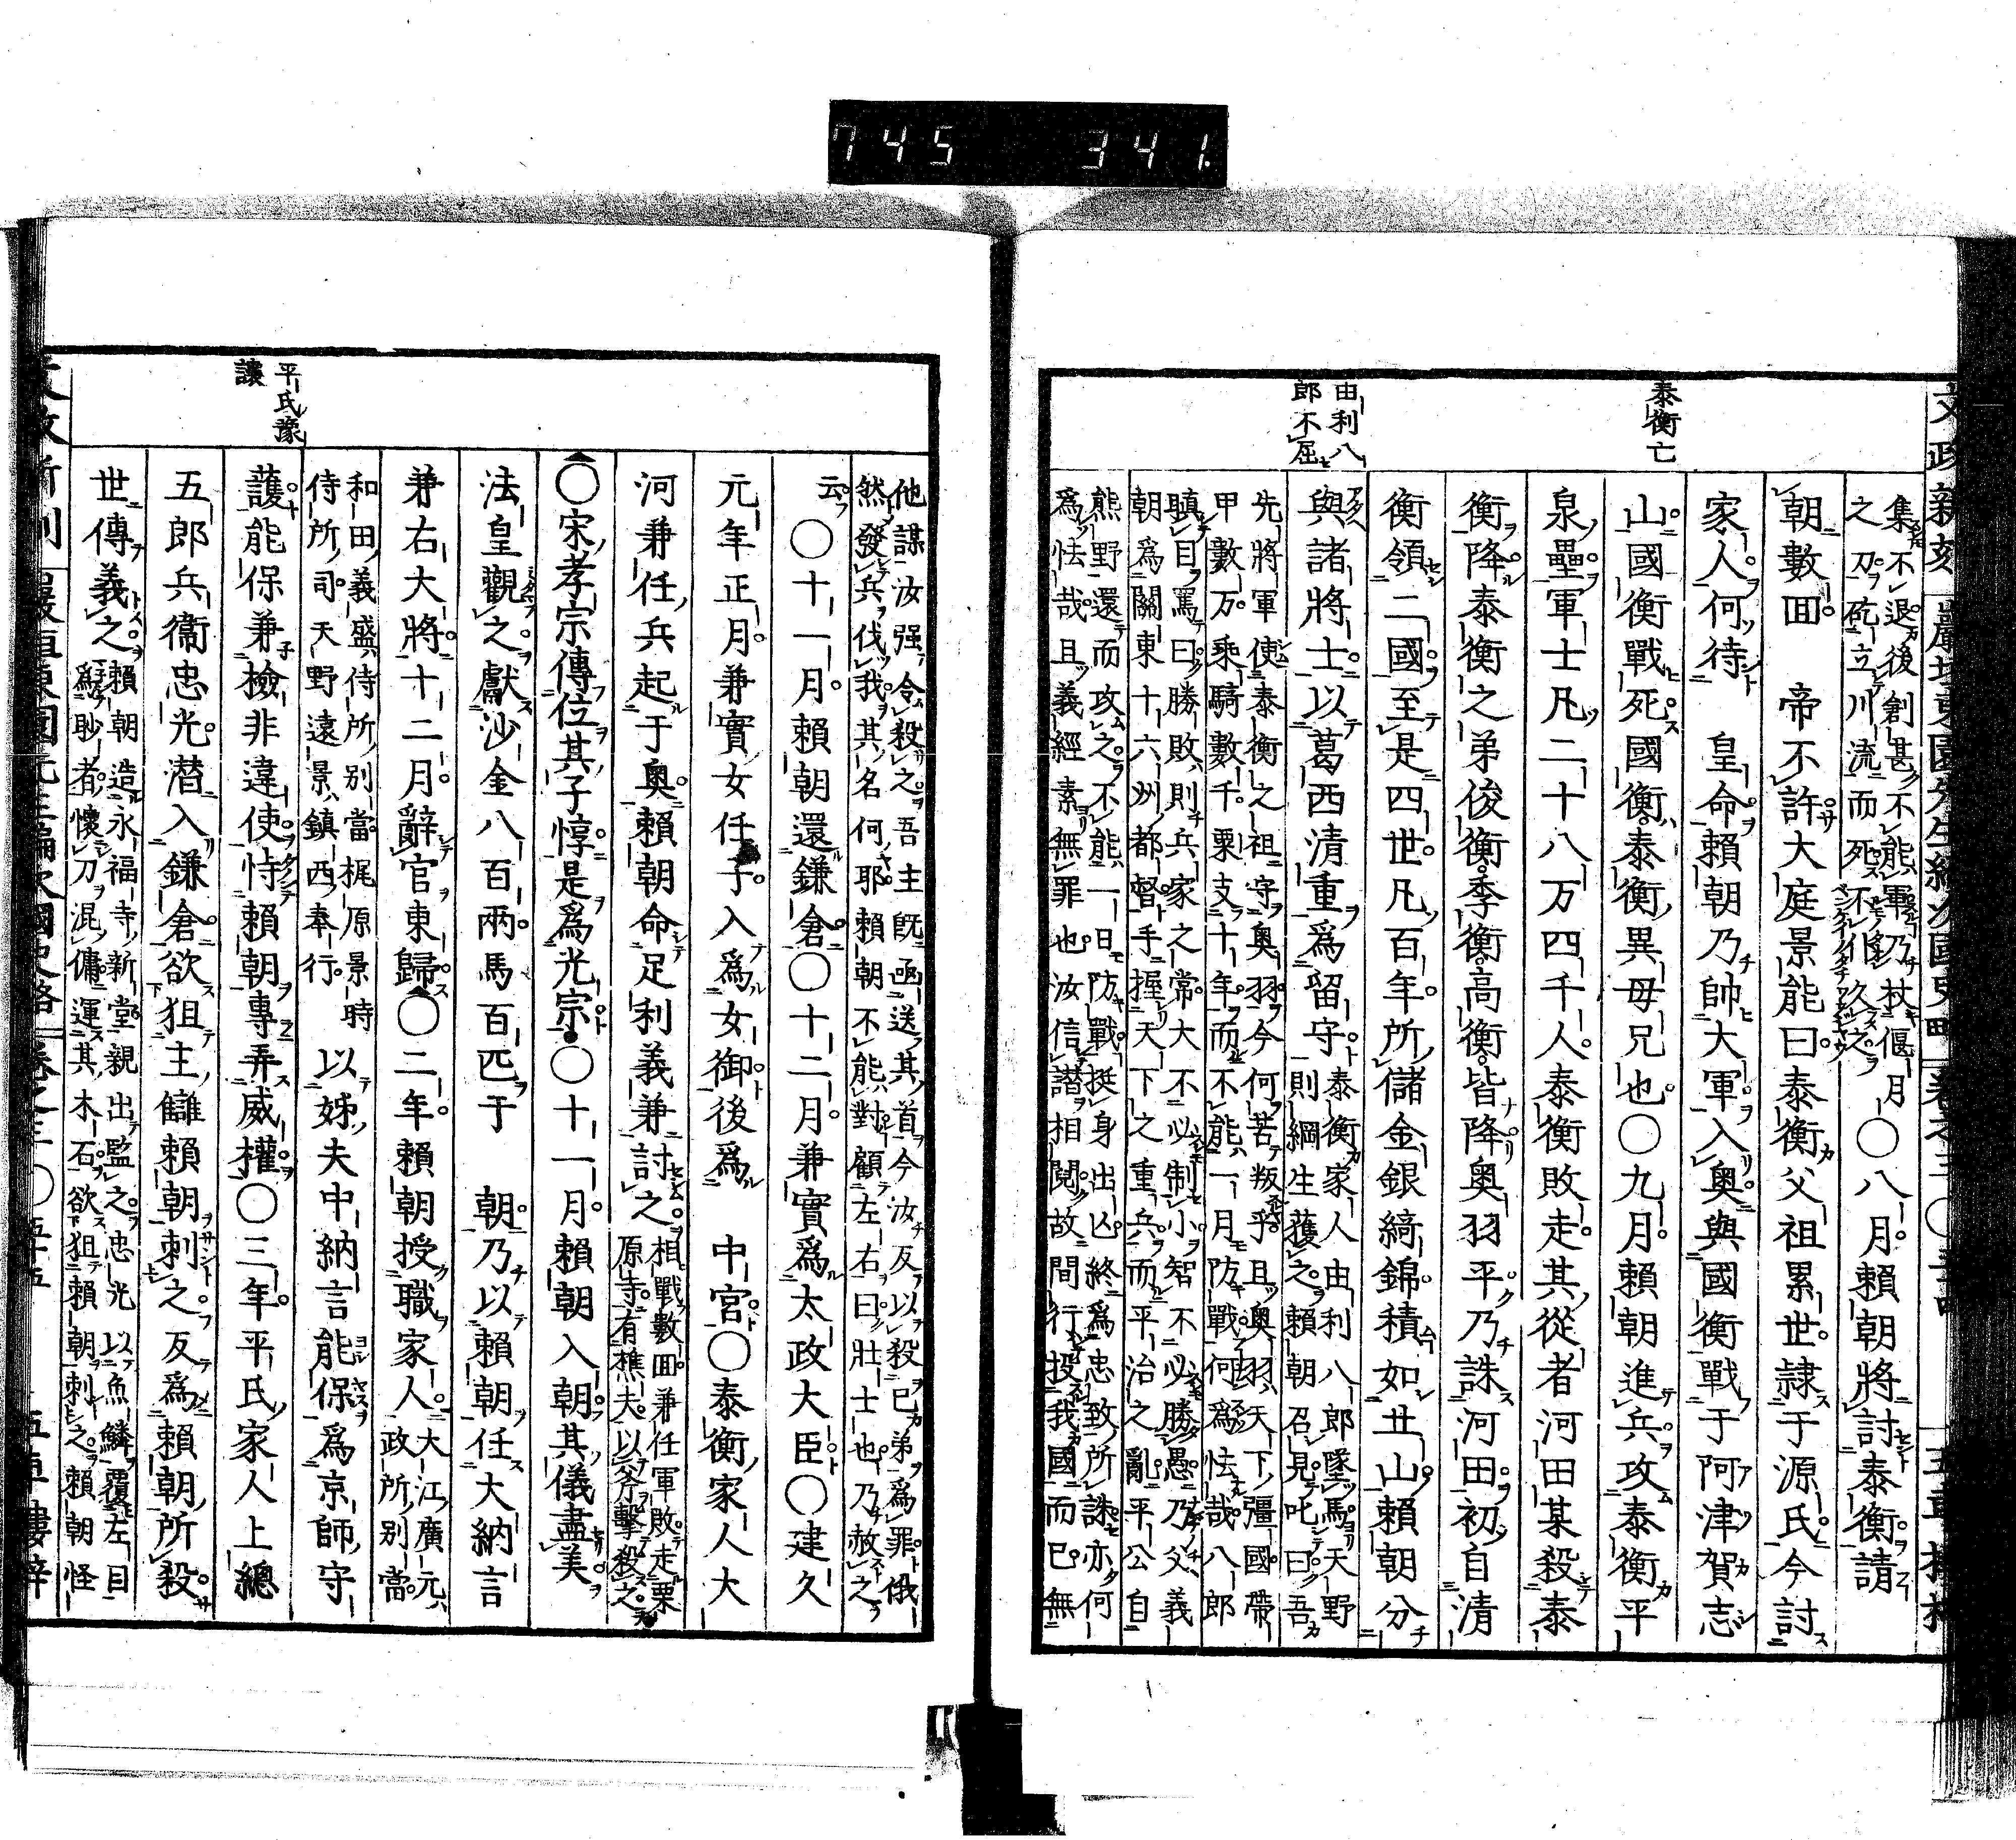 745 341.
泰衡亡
由利八
郎不屈
集不退後創甚不能軍乃杖偃月
之刀矻立川流而死不仆久之
○八月賴朝將討泰衡請
朝數回 帝不許大庭景能曰泰衡父祖累世隷于源氏今討
家人何待 皇命賴朝乃帥大軍入奧與國衡戰于阿津賀志
山國衡戰死國衡泰衡異母兄也○九月賴朝進兵攻泰衡平
泉壘軍士凡二十八万四千人泰衡敗走其從者河田某殺泰
衡降泰衡之弟俊衡季衡高衡皆降奧羽平乃誅河田初自清
衡領二國至是四世凡百年所儲金銀綺錦積如丘山賴朝分
與諸將士以葛西清重爲留守
泰衡家人由利八郎墜馬天野
則綱生獲之賴朝召見叱曰吾
先將軍使泰衡之祖守奧羽今何苦叛乎且奧羽天下彊國帶
甲數万乘騎數千粟支十年而不能一月防戰何爲怯哉八郎
瞋目罵曰勝敗則兵家之常大不必制小智不必勝愚乃父義
朝爲關東十六州都督手握天下之重兵而平治之亂平公自
熊野還而攻之不能一日防戰挺身出亾終爲忠致所誅亦何
爲怯哉且義經素無罪也汝信譖相鬩故間行投我國而已無
他謀汝强令殺之吾主旣函送其首今汝反以殺已弟爲罪俄
然發兵伐我其名何耶賴朝不能對顧左右曰壯士也乃赦之
云○十一月賴朝還鎌倉○十二月兼實爲太政大臣○建久
元年正月兼實女任子入爲女御後爲 中宮○泰衡家人大
河兼任兵起于奧賴朝命足利義兼討之
相戰數回兼任軍敗走栗
原寺有樵夫以斧擊殺之
○宋孝宗傳位其子惇是爲光宗○十一月賴朝入朝其儀盡美
法皇觀之獻沙金八百兩馬百匹于 朝乃以賴朝任大納言
兼右大將十二月辭官東歸○二年賴朝授職家人
大江廣元
政所別當
和田義盛侍所別當梶原景時
侍所司天野遠景鎮西奉行
以姊夫中納言能保爲京師守
護能保兼檢非違使恃賴朝專弄威權○三年平氏家人上總
五郎兵衞忠光潛入鎌倉欲狙主讎賴朝刺之反爲賴朝所殺
世傳義之
賴朝造永福寺新堂親出監之忠光以魚鱗覆左目
爲眇者懷刀混傭運其木石欲狙賴朝刺之賴朝怪
平氏豫
讓